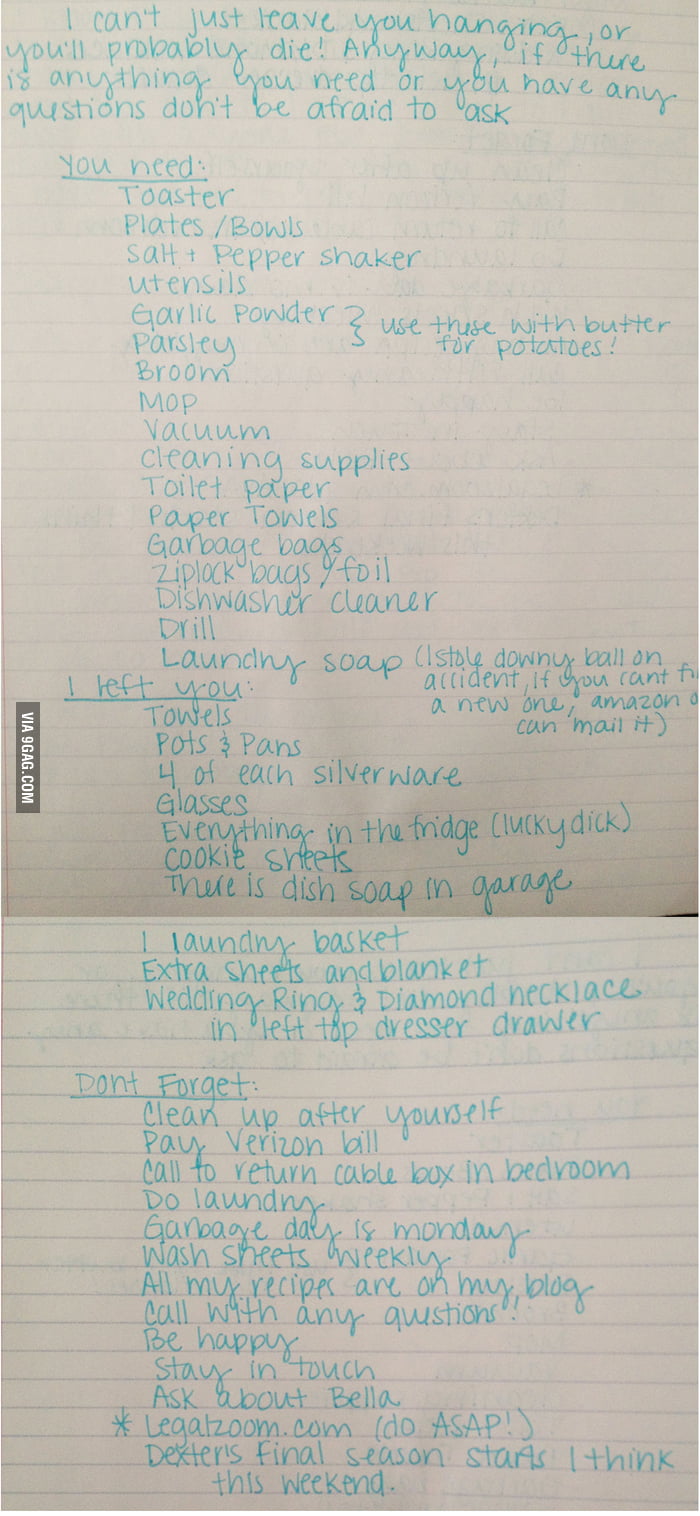 I can't just leave you hanging, or
you'll probably die! Anyway, if there
is anything you need or you have any
questions don't be afraid to ask
You need:
Toaster
Plates / Bowls
Salt + Pepper shaker
utensils
Garlic Powder } use these with butter
Parsley for potatoes!
Broom
Mop
Vacuum
cleaning supplies
Toilet paper
Paper Towels
Garbage bags
Ziplock bags / foil
Dishwasher cleaner
Drill
Laundry soap (I stole downy ball on
accident, if you cant
a new one, amazon
can mail it)
I left you:
Towels
Pots & Pans
4 of each silverware
Glasses
Everything in the fridge (lucky dick)
cookie sheets
There is dish soap in garage
VIA 9GAG.COM
1 laundry basket
Extra sheets and blanket
Wedding Ring & Diamond necklace
in left top dresser drawer
Dont Forget:
Clean up after yourself
Pay Verizon bill
Call to return cable box in bedroom
Do laundry
Garbage day is monday
Wash sheets weekly
All my recipes are on my blog
Call with any questions!
Be happy
Stay in touch
Ask about Bella
* Legalzoom.com (do ASAP!)
Dexter's final season starts I think
this weekend.